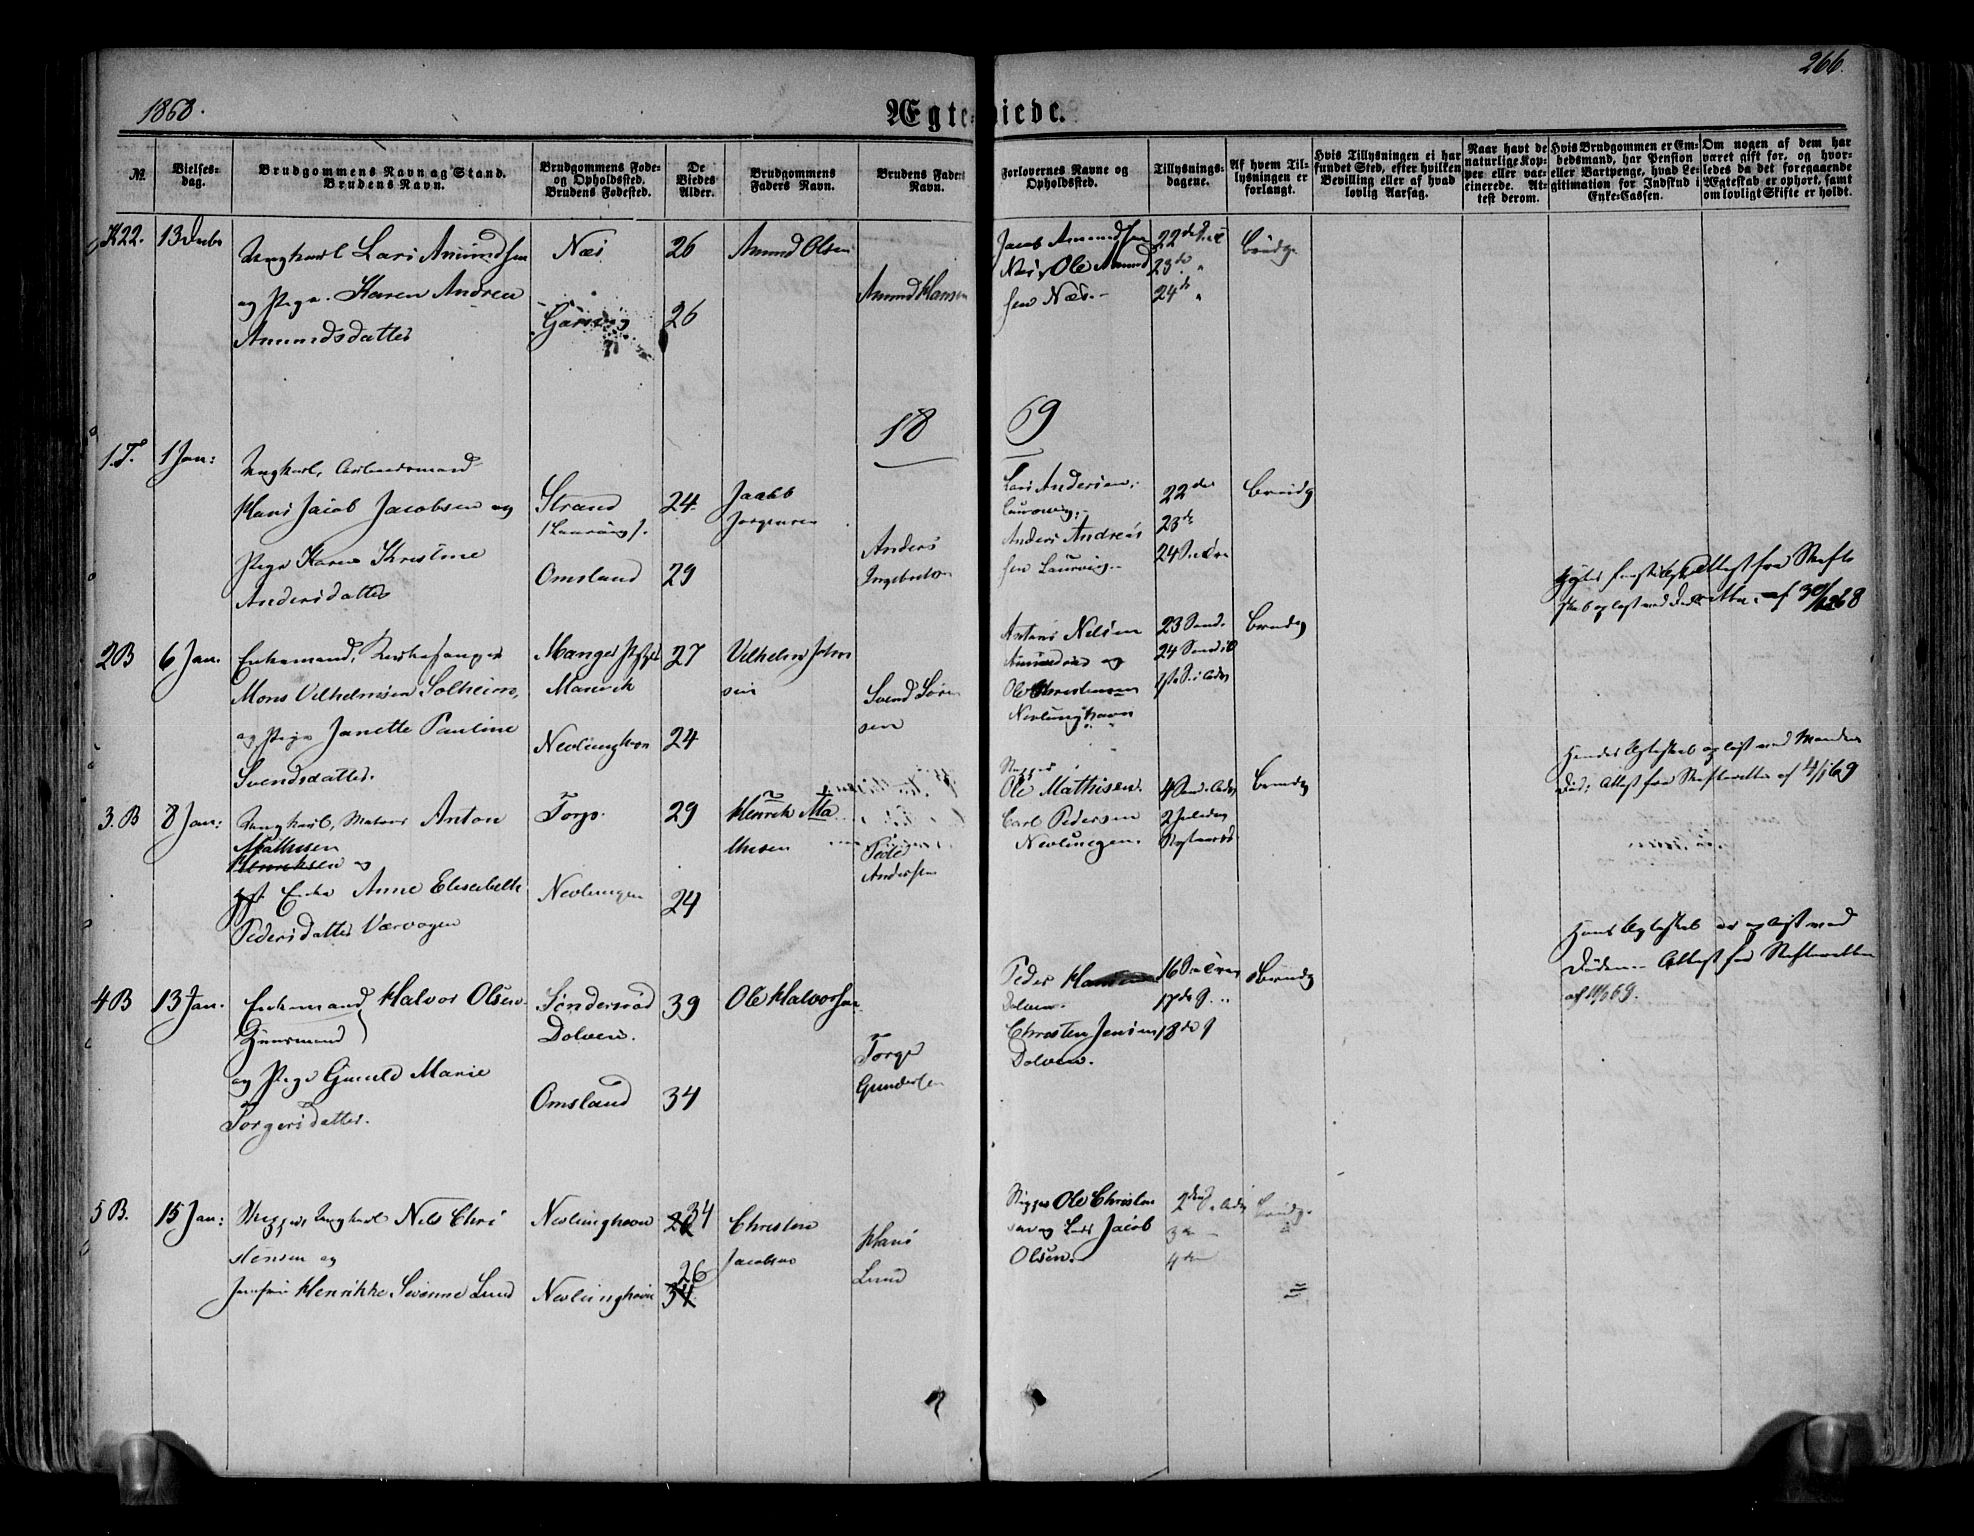 266.
1868.
Ægteviede.
№.
Vielses-
dag.
Brudgommens Navn og Stand.
Brudens Navn.
Brudgommens Føde-
og Opholdssted.
Brudens Fødested.
De
Viedes
Alder.
Brudgommens
Faders Navn.
Brudens Faders
Navn.
Forlovernes Navne og
Opholdssted.
Tillysnings-
dagene.
Af hvem Til-
lysningen er
forlangt.
Hvis Tillysningen ei har
fundet Sted, efter hvilken
Bevilling eller af hvad
lovlig Aarsag.
Naar havt de
naturlige Kop-
per eller vac-
cinerede. At-
test derom.
Hvis Brudgommen er Em-
bedsmand, har Pension
eller Vartpenge, hvad Le-
gitimation for Indskud i
Enke-Cassen.
Om nogen af dem har
været gift før, og hvor-
ledes da det foregaaende
Ægteskab er ophørt, samt
om lovligt Skifte er holdt.
K22.
Ungkarl Lars Amundsen
og Pige Karen Andrea
Amundsdatter
Næs
26
26
Amund Olsen
Amund Hansen
Jacob Amundsen
Næs, Ole Amund
sen Næs.
22de
23de
24de
Brudg.
1869
1.T.
1 Jan:
Ungkarl, Arbeidsmand
Hans Jacob Jacobsen og
Pige Karen Kristine
Andersdatter
Strand
(Laurvig).
Omsland
24
29
Jacob
Jørgensen
Anders
Ingebretsen
Lars Andersen,
Laurvig,
Anders Andrea
sen Laurvig.
22de
23de
24
Brudg
2B
6 Jan.
Enkemand, Kirkesanger
Mons Vilhelmsen Solheim,
og Pige Janette Pauline
Svendsdatter.
Manger
Manvik
Nevlunghavn
27
24
Vilhelm John
sen
Svend Søren
sen
Nilsen
og
Ole Christensen
Nevlunghavn
23
24
Brudg
Skifte
af 30/12 68
3.B
8 Jan:
Ungkarl, Matros Anton
Mathisen
Henriksen og
Enke Anne Elisabeth
Pedersdatter Værvagen
Torp.
Nevlungen
29
24
Henrik Ma
thisen
Peder
Andersen
Skipper
Ole Mathisen.
Carl Pedersen
Nevlungen.
Brudg
Hendes Ægteskab opløst ved Mandens
Død; Attest fra Skifteretten af 4/1 69
4B
13 Jan.
Enkemand Halvor Olsen
Huusmand
og Pige Gunild Marie
Torgersdatter.
Søndersrød
Dolven.
Omsland
39
34
Ole Halvorsen
Torger
Gundersen
Peder
Dolven.
Christen Jensen
Dolven.
16
17de
18de
Brudg
Hans Ægteskab er opløst ved
Døden. Attest fra Skifteretten
af
5B.
15 Jan:
Skipper, Ungkarl Nils Chri
stensen og
Jomfru Henrikke Sivonne Lund
Nevlunghavn
Nevlunghavn
26 34
26
34
Christen
Jacobsen
Hans
Lund
Skipper Ole Christen
sen og Lars Jacob
Olsen.
2den
3de
4de
Brudg.